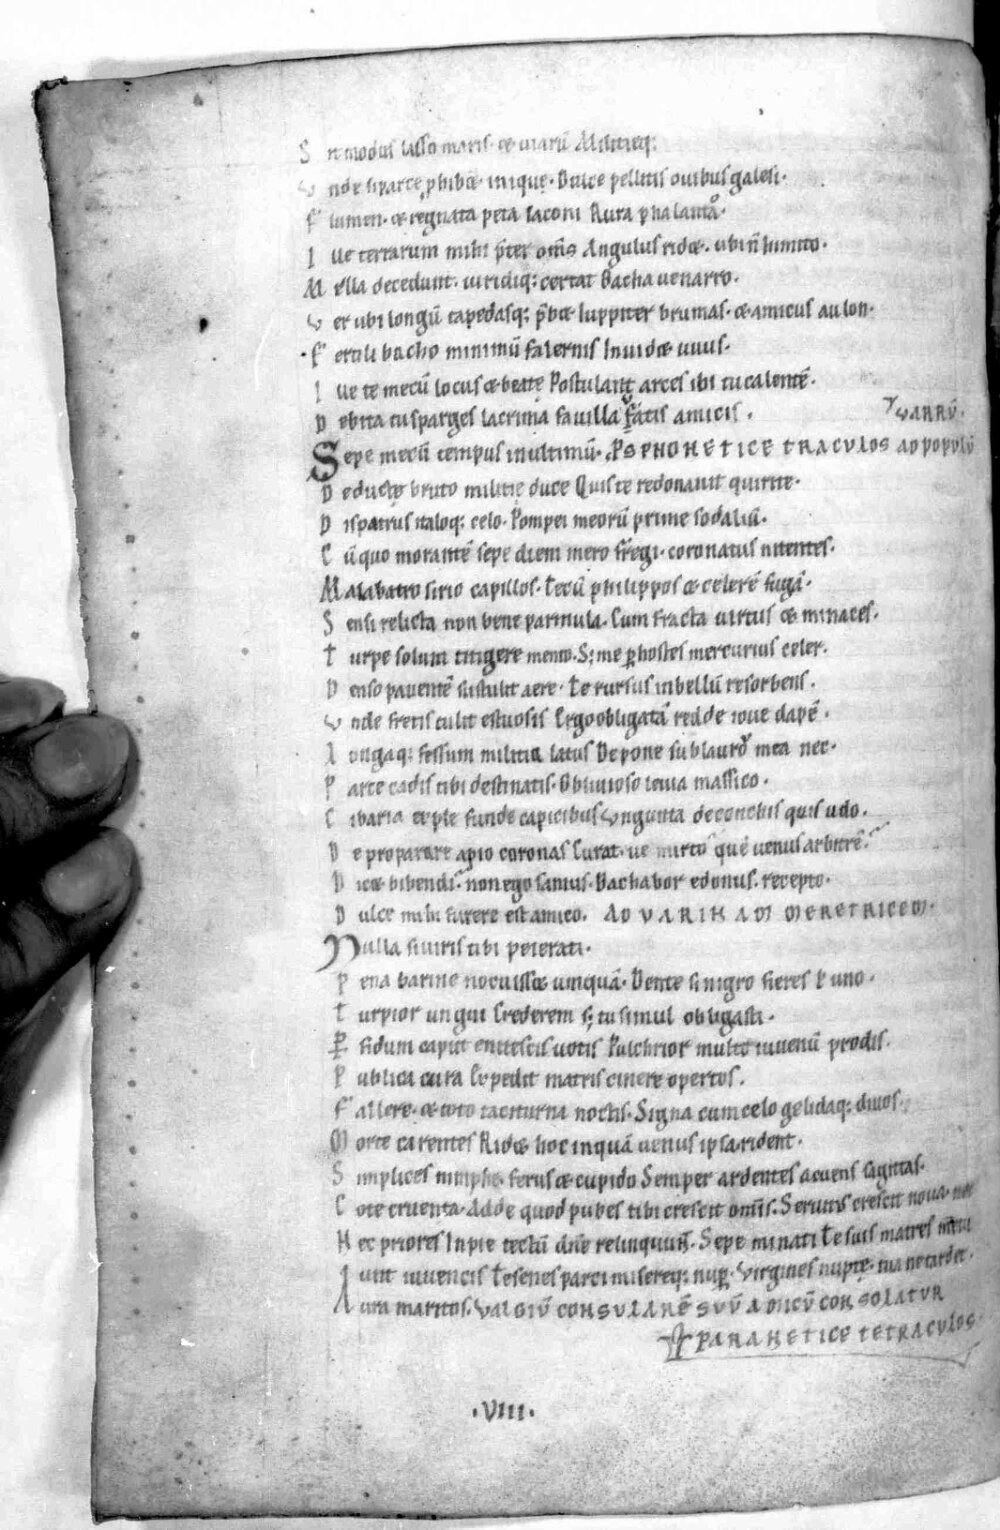 S it modus lasso maris. & viarū Militieq;
V nde si parce phib&. inique. Dulce pellitis ovibus galesi.
F lumen. & regnata peta laconi Rura phalanto.
I lle terrarum mihi p̄ter om̄s Angulus rid&. ubi n̄ himito.
M ella decedunt. viridiq; certat Bacha venafro.
V er ubi longū tapedasq; p̄b& Iuppiter brumas. & amicus aulon.
F ertili bacho minimū falernis Invid& vuus.
I lle te mecū locus & beatę Postulant arces ibi tu calentē.
D ebita tu sparges lacrima favilla amicis.
VARRŪ.
Sepe mecū tempus in ultimū. PSPHONETICE TRACULOS AD POPULŪ
D educte bruto militię duce Quis te redonavit quirite.
D is patrus italoq; celo. Pompei meorū prime sodaliū.
C ū quo morantē sepe diem mero fregi. coronatus nitentes.
M alabatro sirio capillos. Tecū philippos & celerē fugā.
S ensi relicta non bene parmula. Cum fracta virtus & minaces.
T urpe solum tingere mento. S; me p̱ hostes mercurius celer.
D enso paventē sustulit aere. Te rursus in bellū resorbens.
V nde fretis tulit estuosis Ergo obligatā redde iove dapē.
L ongaq; fessum militia latus Depone sub lauro mea nec.
P arce cadis tibi destinatis. Oblivioso levia massico.
C ibaria exple funde capicibus Vnguenta de conchis quis udo.
D e properare apio coronas Curat. ve mirto quē venus arbitrē.
D ic& bibendi. non ego sanius. Bachabor edonus. recepto.
D ulce mihi furere est amico. AD VARINAM MERETRICEM.
Nulla si viris tibi peierati.
P ena barine nocuiss& umquā. Dente si nigro fieres & uno.
T urpior ungui Crederem s; tu simul obligasti.
P̱ fidum caput enitescis votis Pulchrior multo iuvenū prodis.
P ublica cura Expedit matris cinere opertos.
F allere. & toto taciturna noctis. Signa cum celo gelidaq; divos.
M orte carentes Rid& hoc inquā venus ipsa. rident.
S implices nimphe. ferus & cupido Semper ardentes acuens sagittas.
C ote cruenta. Adde quod pubes tibi crescit om̄is. Servitus crescit nova. nec
H ec priores Inpie tectū dn̄e relinquun̄. Sepe minati Te suis matres metu
I unt iuvencis Te senes parci misereq; nup̱. Virgines nuptę. tua ne tardet.
A ura maritos. VALGIŪ CONSULARĒ SUŪ AMICŪ CONSOLATUR
PARANETICE TETRACULOS.
.VIII.